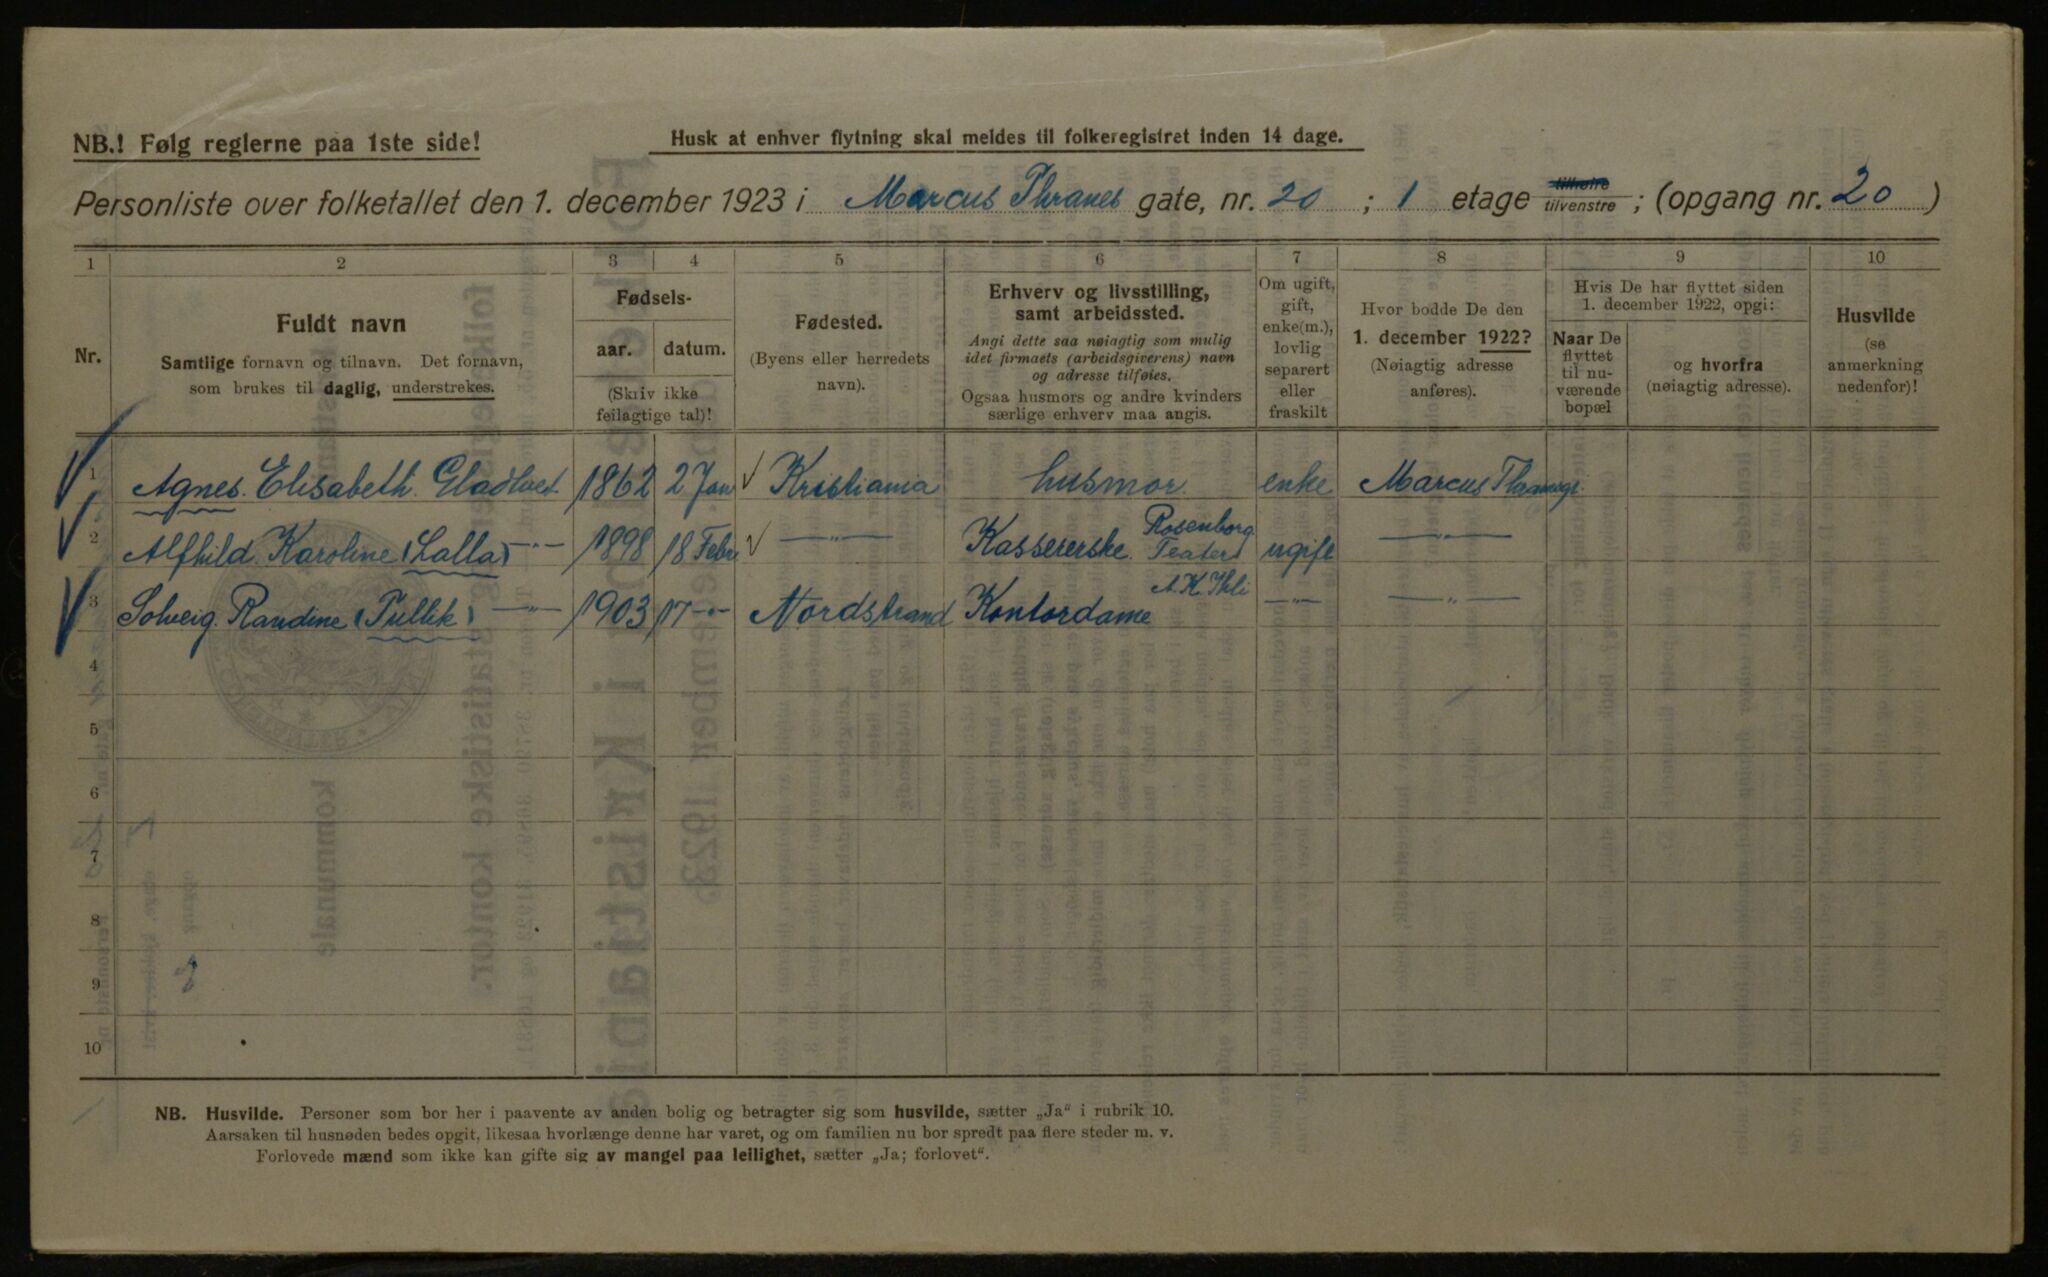 NB.! Følg reglerne paa 1ste side!
Husk at enhver flytning skal meldes til folkeregistret inden 14 dage.
Personliste over folketallet den 1. december 1923 i Marcus Thranes gate, nr. 20 ; 1 etage tilhøire tilvenstre ; (opgang nr. 20 )
1 2 3 4 5 6 7 8 9 10
Nr.
Fuldt navn
Samtlige fornavn og tilnavn. Det fornavn,
som brukes til daglig, understrekes.
Fødsels-
aar. datum.
(Skriv ikke
feilagtige tal)!
Fødested.
(Byens eller herredets
navn).
Erhverv og livsstilling,
samt arbeidssted.
Angi dette saa nøiagtig som mulig
idet firmaets (arbeidsgiverens) navn
og adresse tilføies.
Ogsaa husmors og andre kvinders
særlige erhverv maa angis.
Om ugift,
gift,
enke(m.),
lovlig
separert
eller
fraskilt
Hvor bodde De den
1. december 1922?
(Nøiagtig adresse
anføres).
Hvis De har flyttet siden
1. december 1922, opgi:
Naar De
flyttet
til nu-
værende
bopæl
og hvorfra
(nøiagtig adresse).
Husvilde
(se
anmerkning
nedenfor)!
1 Agnes Elisabeth Gladtvet 1862 2 Jan Kristiania husmor. enke Marcus Thranesgt.
2 Alfhild Karoline (Lalla) —"— 1898 18 Febr —"— Kassererske Rosenborg Teater ugift —"—
3 Solveig Randine (Tullik) —"— 1903 17 —"— Nordstrand Kontordame A. K. Ihli —"— —"—
4
5
6
7
8
9
10
NB. Husvilde. Personer som bor her i paavente av anden bolig og betragter sig som husvilde, sætter „Ja" i rubrik 10.
Aarsaken til husnøden bedes opgit, likesaa hvorlænge denne har varet, og om familien nu bor spredt paa flere steder m. v.
Forlovede mænd som ikke kan gifte sig av mangel paa leilighet, sætter „Ja; forlovet".